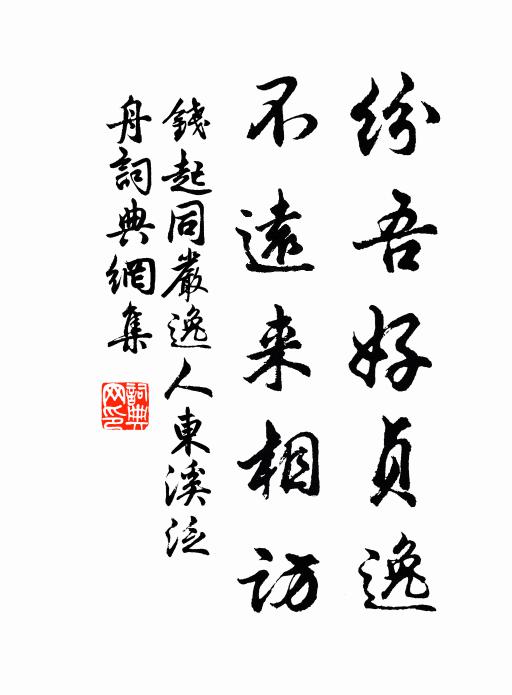 纷吾好贞逸
不遠来相訪
錢起同嚴逸人東溪泛
舟詞典網集
詞典
网印